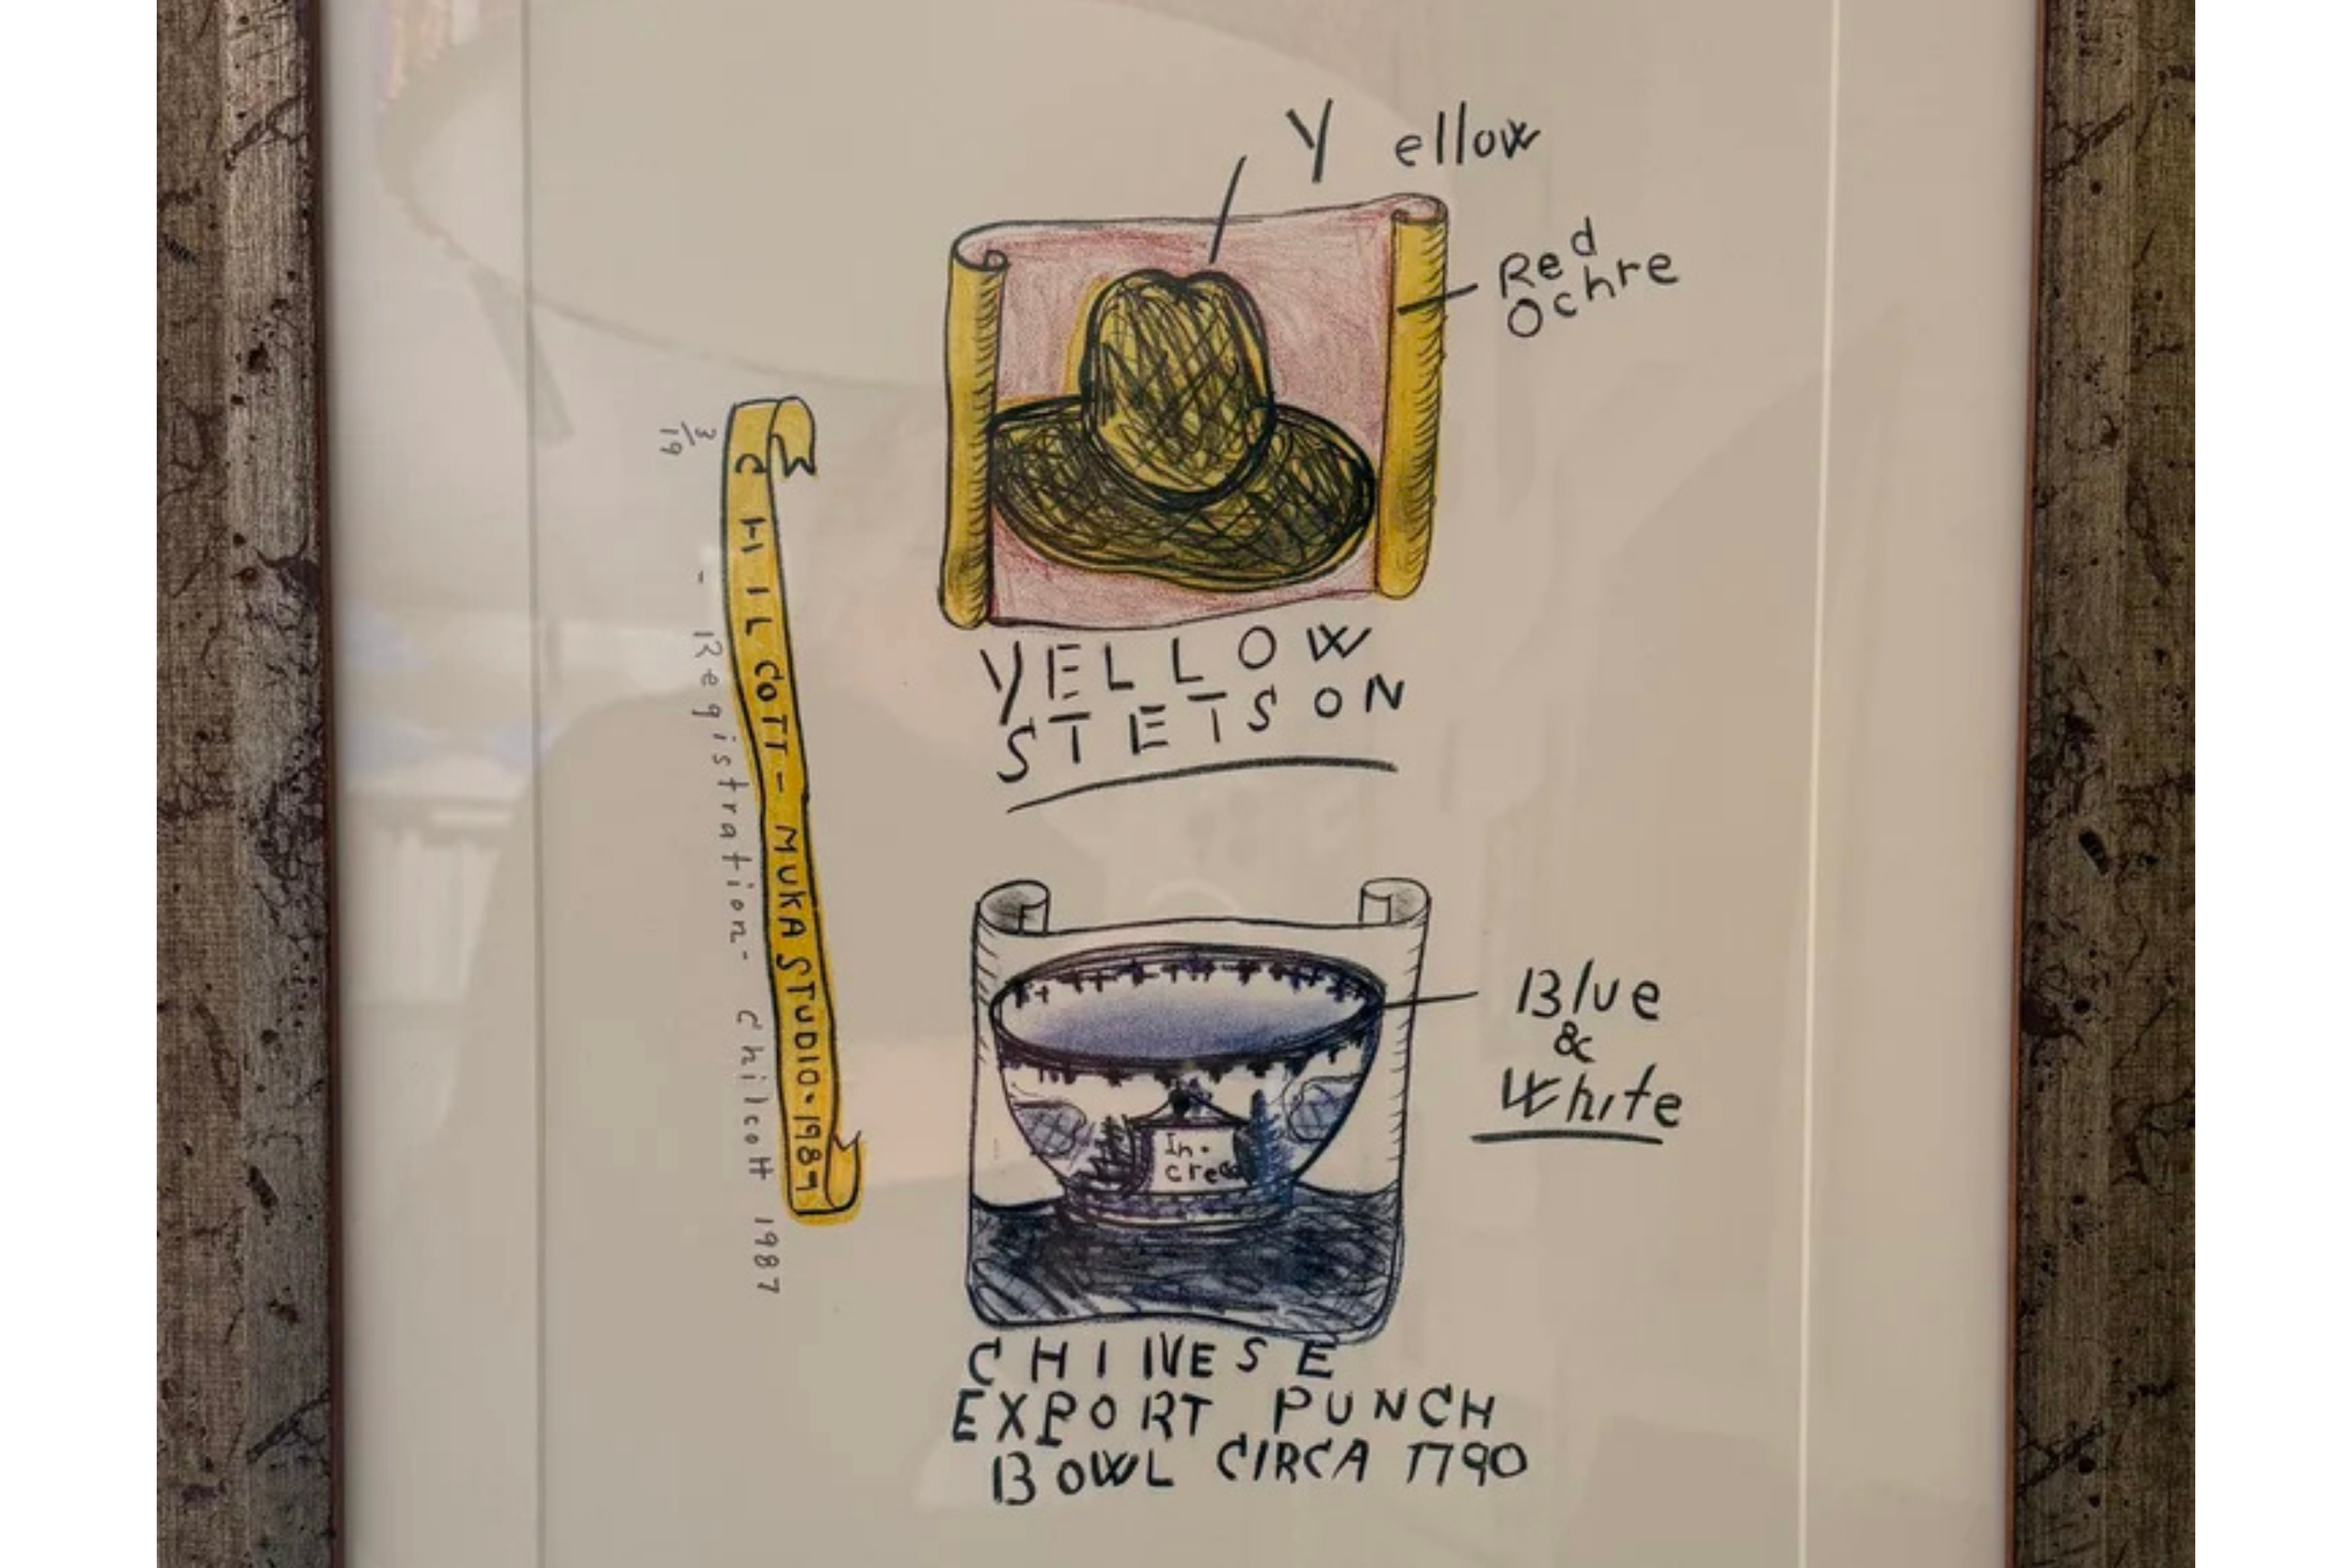 Y ellow
Red
Ochre
YELLOW
STETSON
3/19
CHILCOTT - MUKA STUDIO · 1987
- Registration - Chilcott 1987
Blue
&
White
In.
cred
CHINESE
EXPORT PUNCH
BOWL CIRCA 1790